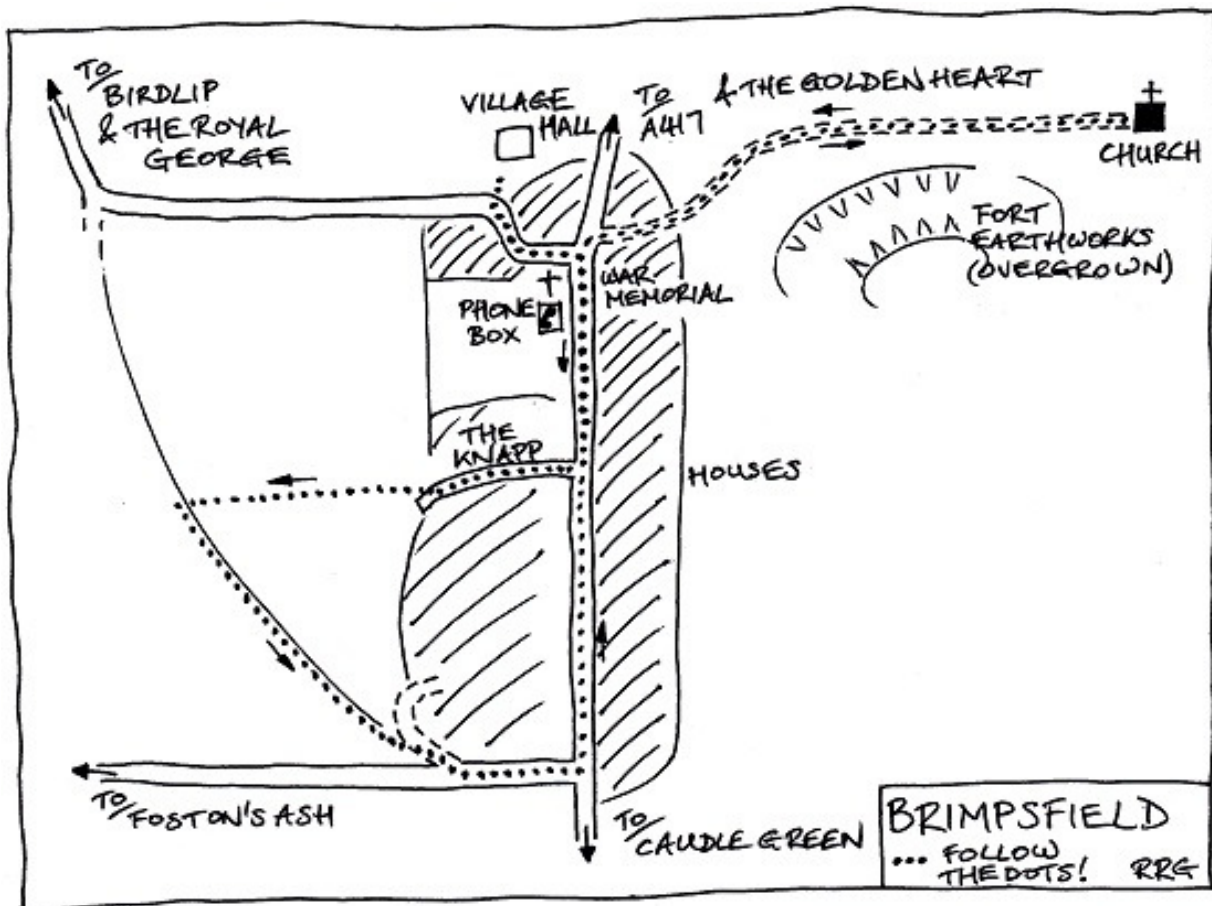 TO/
BIRDLIP
& THE ROYAL
GEORGE
VILLAGE
HALL
TO/
A417
& THE GOLDEN HEART
CHURCH
FORT
EARTHWORKS
(OVERGROWN)
WAR
MEMORIAL
PHONE
BOX
THE
KNAPP
HOUSES
TO/
FOSTON'S ASH
TO/
CAUDLE GREEN
BRIMPSFIELD
... FOLLOW
THE DOTS!
RRG